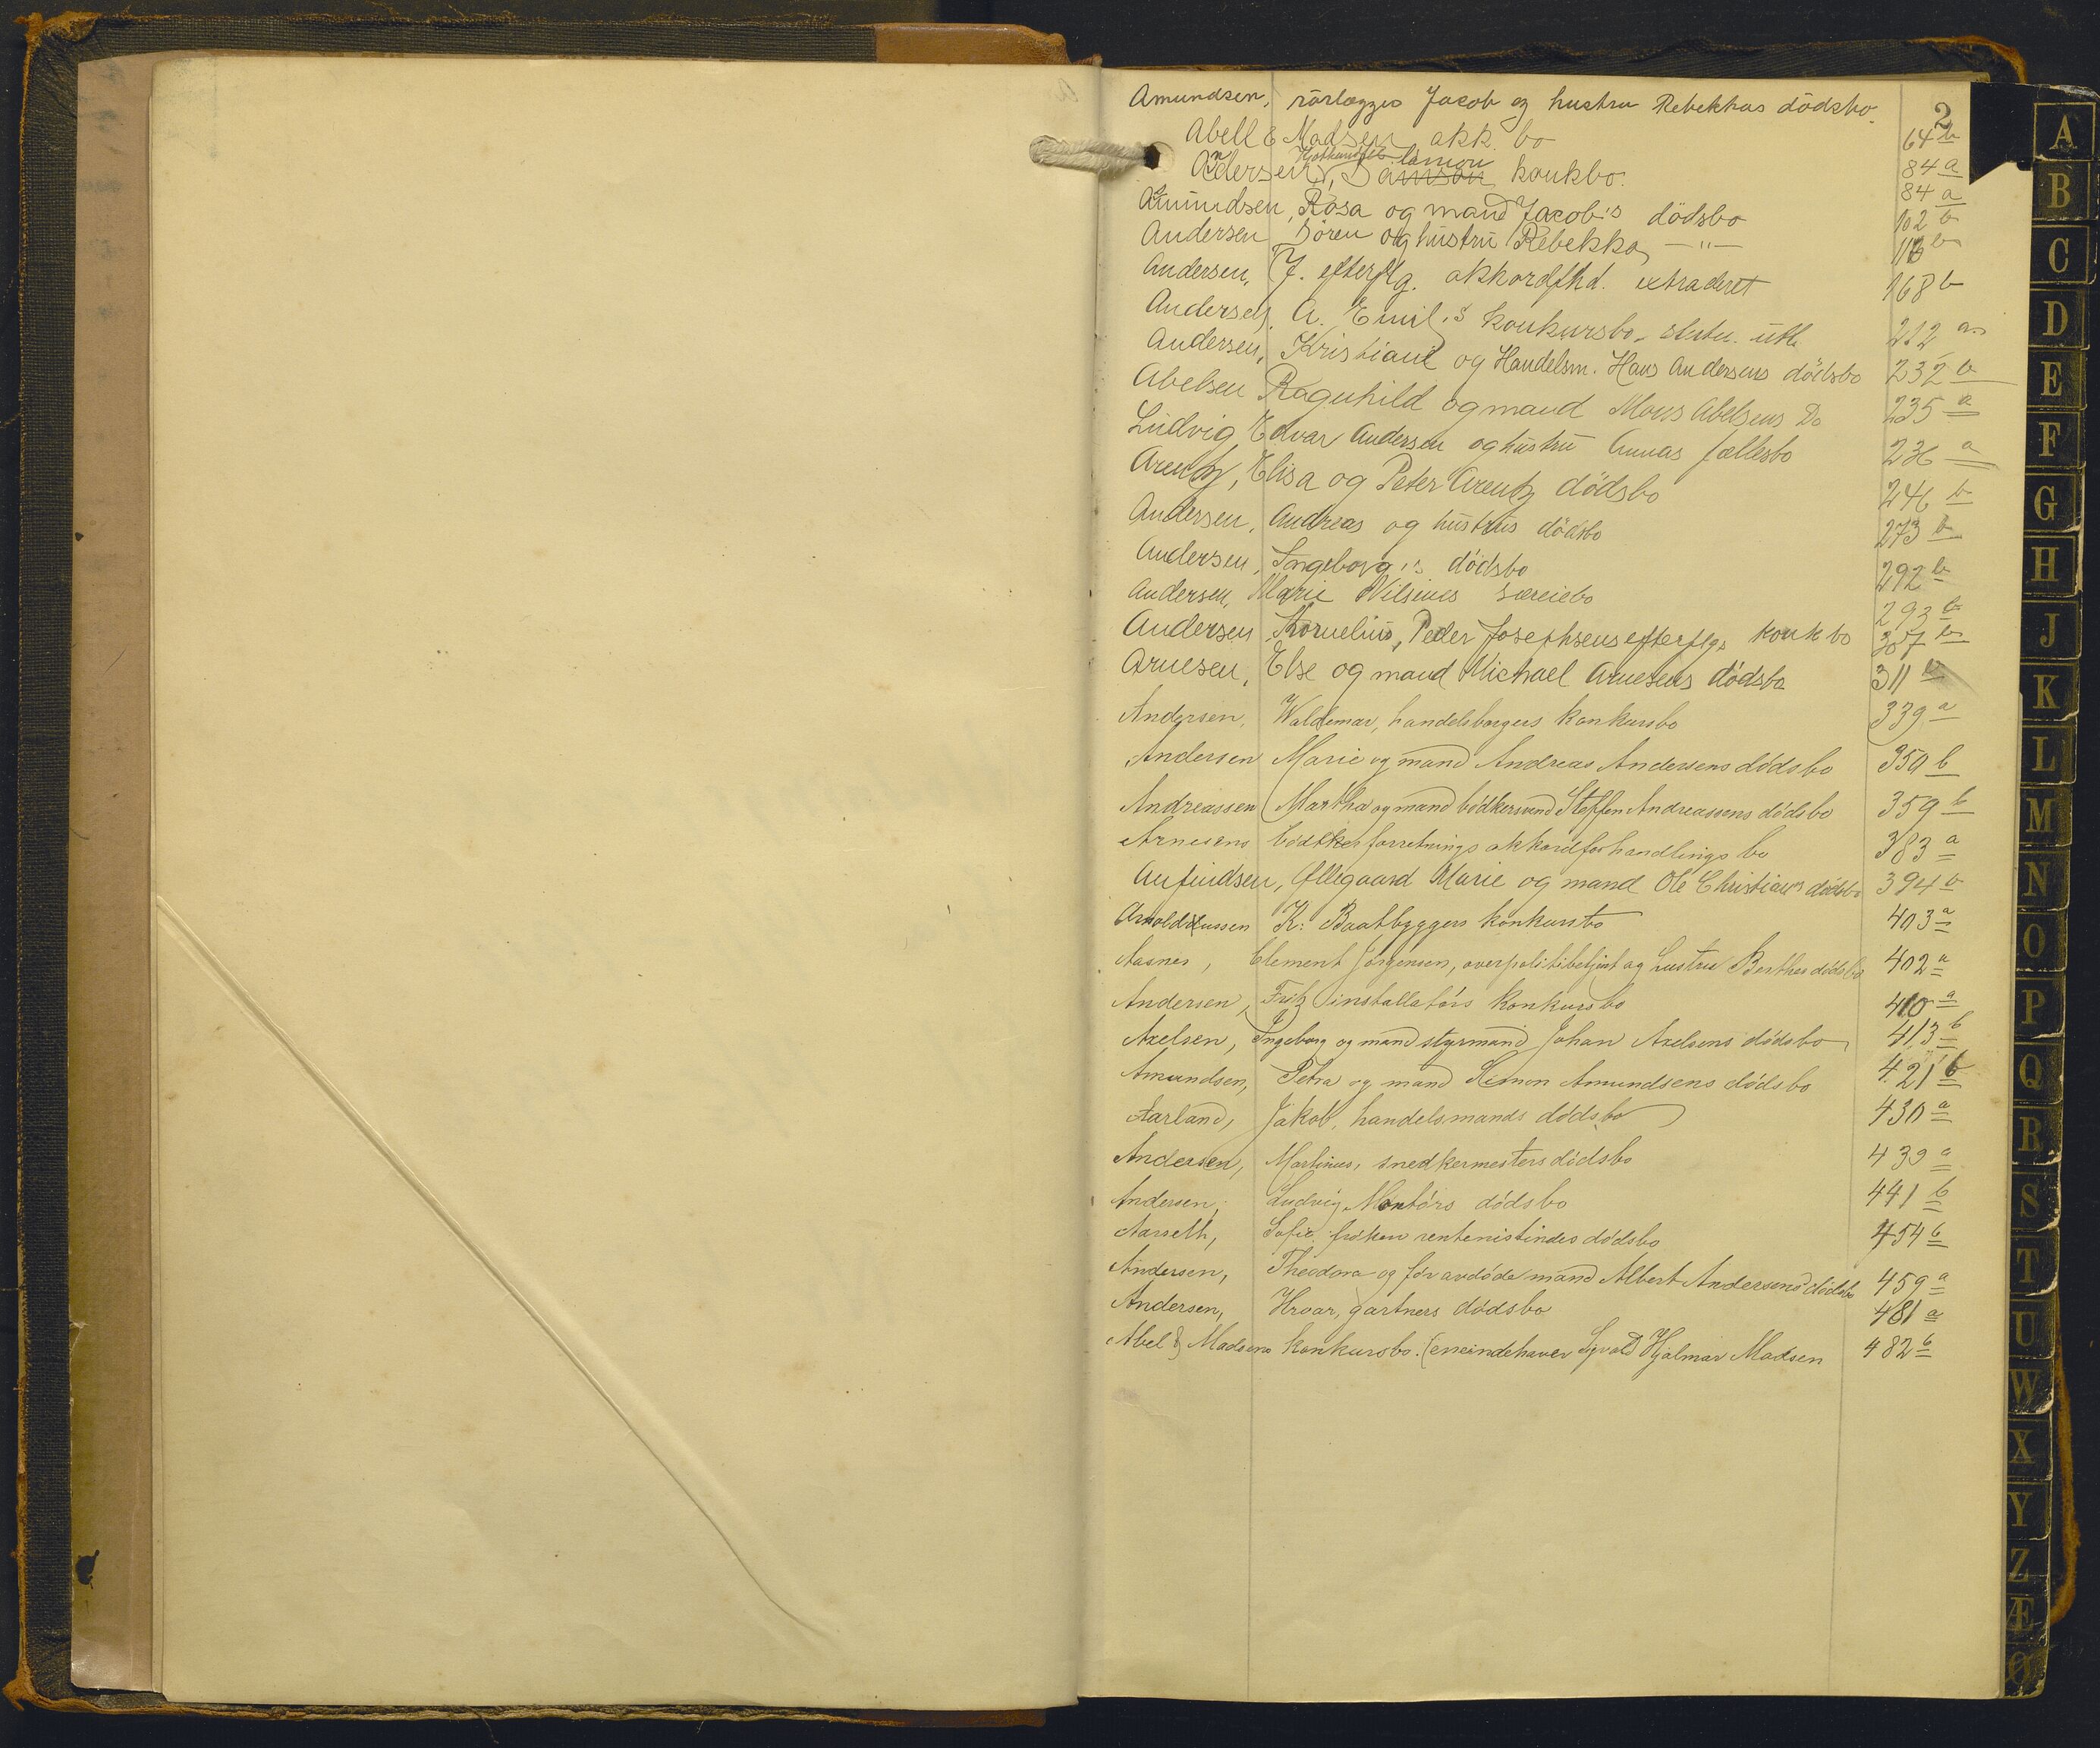 2
Amundsen, rörlægges Jacob og hustru Rebekkas dödsbo 64 b
Abell & Madsen akk. bo 84 a
Andersen, Simon Samson konkbo. 84 a
Amundsen, Rosa og mand Jacob's dödsbo 102 b
Andersen Sören og hustru Rebekka — " — 116 b
Andersen, J. efterflg. akkordfhd. extraderet 168 b
Andersen, A. Emil's konkursbo 212 a
Andersen, Kristiane og Handelsm. Hans Andersens dödsbo 232 b
Abelsen Ragnhild og mand Mons Abelsens Do 235 a
Ludvig Edvar Andersen og hustru Annas fællesbo 236 a
Arentz, Elisa og Peter Arentz dödsbo 246 b
Andersen, Andreas og hustrus dödsbo 273 b
Andersen, Ingeborg's dödsbo 292 b
Andersen, Marie Nilsines særeiebo 293 b
Andersen Kornelius, Peder Josephsens efterflgs konkbo 307 b
Arnesen, Else og mand Michael Arnesens dödsbo 311 b
Andersen, Waldemar, handelsborgers konkursbo 339 a
Andersen Marie og mand Andreas Andersens dödsbo 350 b
Andreassen Martha og mand bödkersvend Steffen Andreassens dödsbo 359 b
Arnesens bödkerforretnings akkordforhandlings bo 383 a
Anfindsen, Ollegaard Marie og mand Ole Christian's dödsbo 394 b
Arnoldussen K: Baatbyggers konkursbo 403 a
Aasnes, Clement Jörgensen, overpolitibetjent og hustru Berthes dödsbo 402 a
Andersen, Fritz installatörs konkursbo 410 a
Axelsen, Ingeborg og mand styrmand Johan Axelsens dödsbo 413 b
Amundsen, Petra og mand Simon Amundsens dödsbo 421 b
Aarland, Jakob, handelsmands dödsbo 430 a
Andersen, Martinus, snedkermesters dödsbo 439 a
Andersen, Ludvig, Montörs dödsbo 441 b
Aarseth, Sofie, fröken rentenistindes dödsbo 454 b
Andersen, Theodora og før avdöde mand Albert Andersens dödsbo 459 a
Andersen, Hroar, gartners dödsbo 481 a
Abel & Madsens konkursbo. (eneindehaver Sigvald Hjalmar Madsen 482 b
A
B
C
D
E
F
G
H
J
K
L
M
N
O
P
Q
R
S
T
U
W
X
Y
Z
Æ
Ø